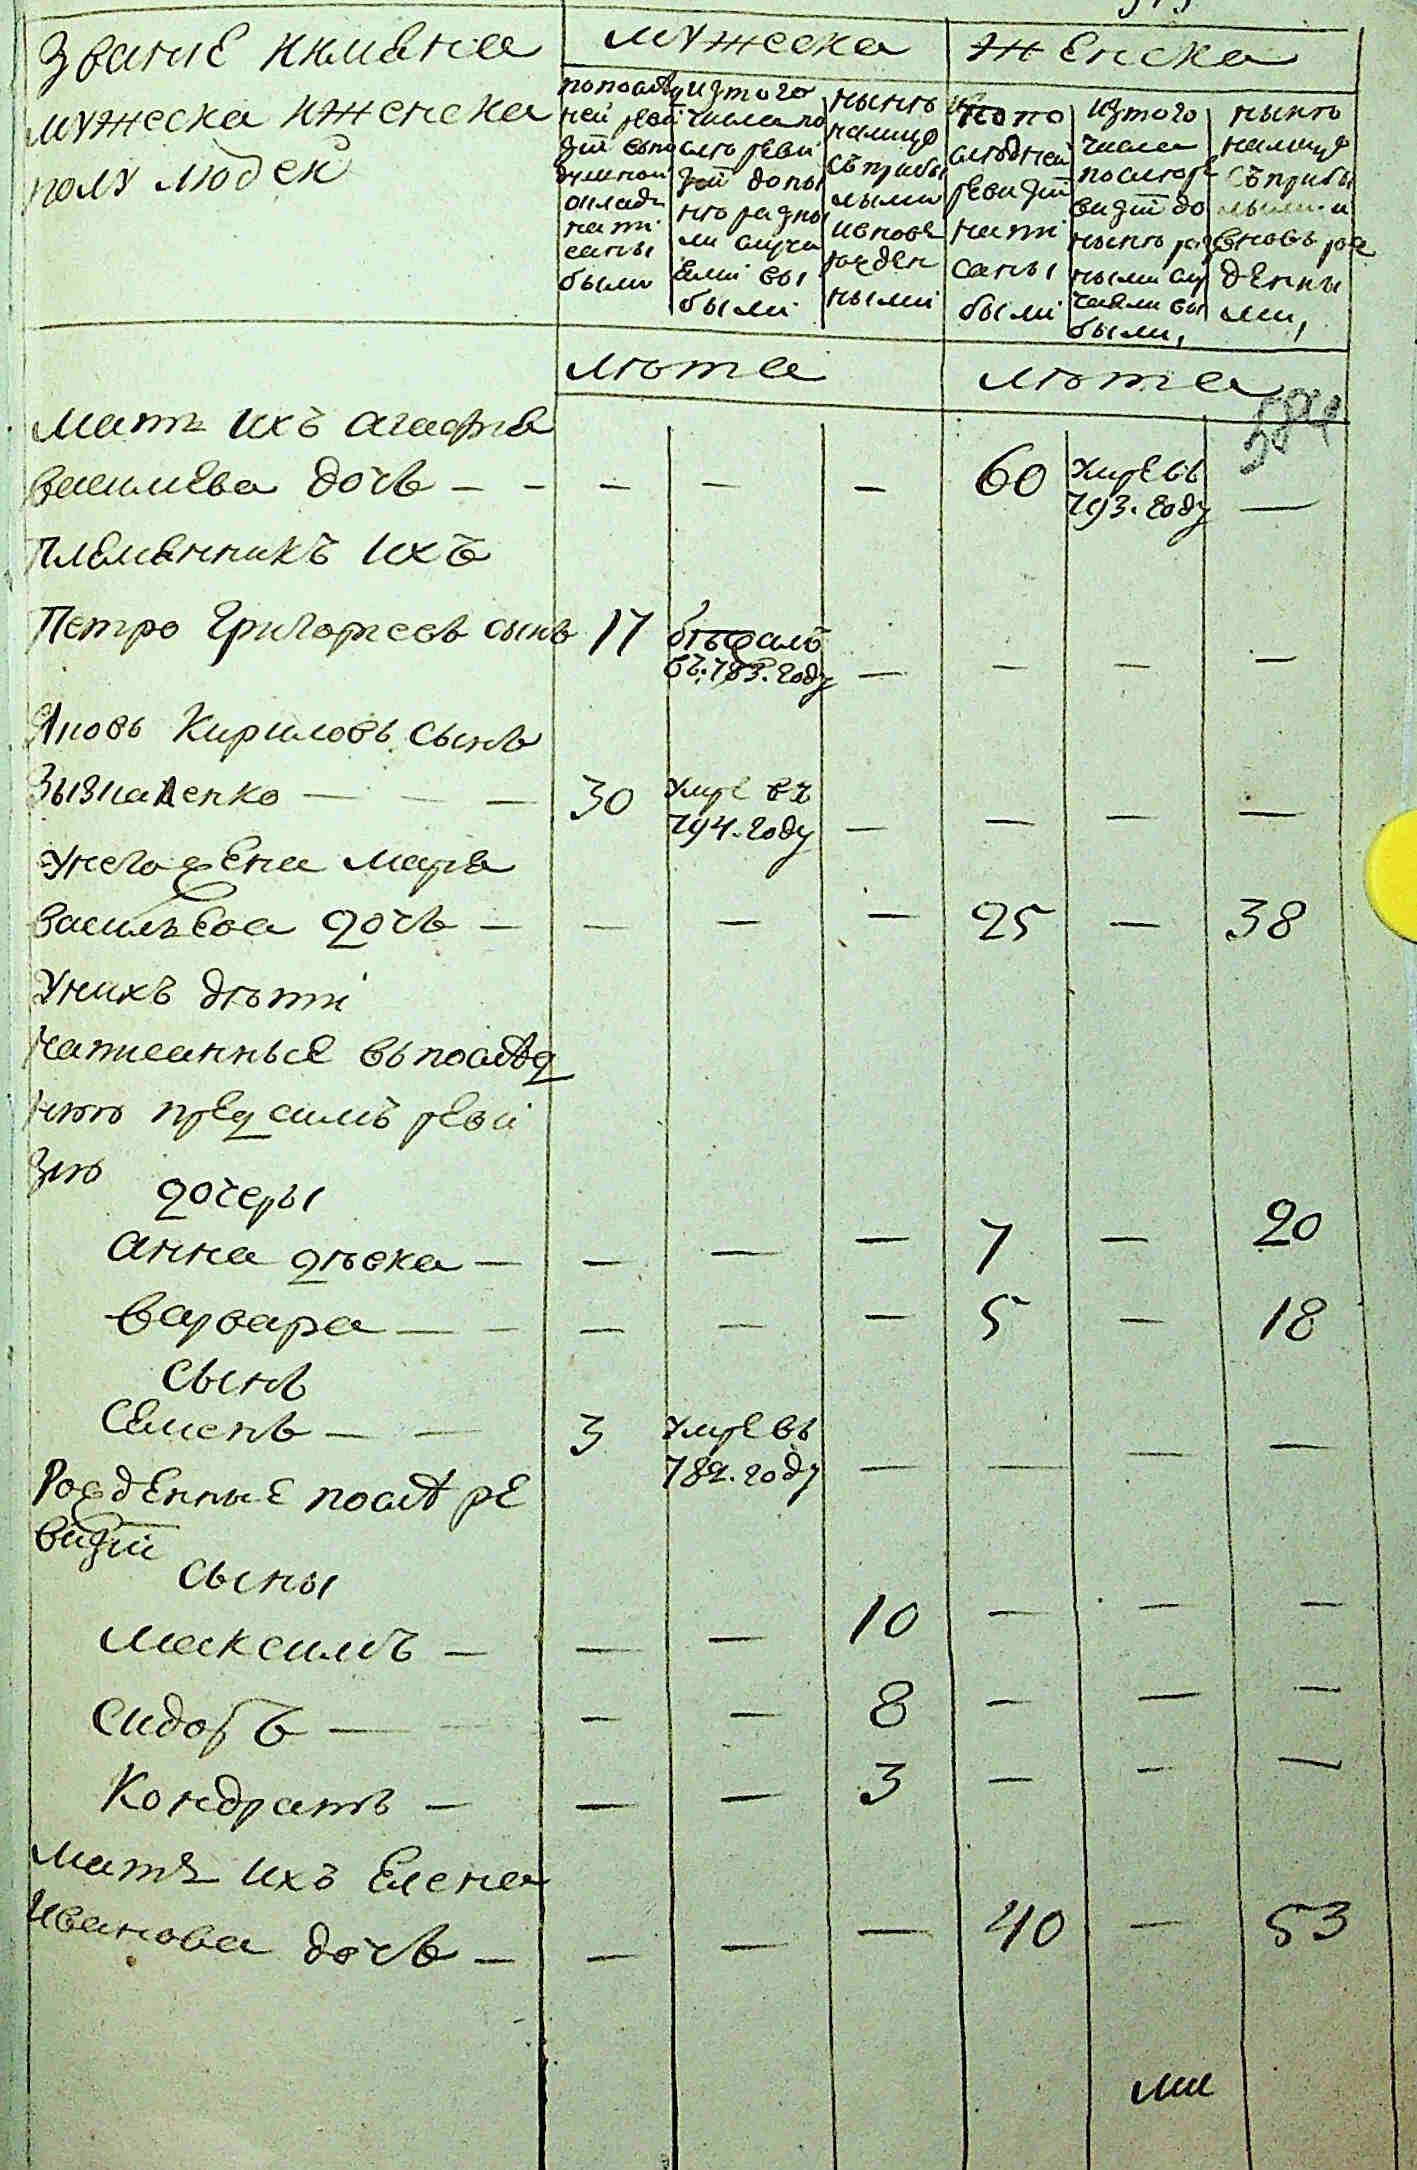 Званіе имѣна
мужеска иженска
полу людей
мужеска
женска
попослѣд
ней реви
зіи в по
душной
окладъ
напи
саны
были
изтого
числа по
слѣ реви
зіи до ны
нѣ разны
ми случа
ями вы
были
нынѣ
налицо
съ прибы
лыми
ивновь
рожден
ными
попо
слѣдней
ревизіи
напи
саны
были
изтого
числа
послѣ ре
визіи до
нынѣ раз
ными слу
чаями вы
были,
нынѣ
налицо
съ прибы
лыми и
вновь рож
денны
ми,
лѣта
лѣта
584
мать ихъ агафія
василиева дочь — — — — — 60 умре въ 793. году —
племянникъ ихъ
Петро Григорьевъ сынъ 17 бѣжалъ въ. 783. году — — — —
Яковъ Кириловъ сынъ
— — — 30 умре въ 794. году — — — —
унего жена марія
васильева дочь — — — — 25 — 38
Унихъ дѣти
написанные въ послѣд
нюю предъ симъ реви
зію
дочеры
анна дѣвка — — — — 7 — 20
варвара — — — — — 5 — 18
сынъ
Семенъ — — 3 умре въ 782. году — — — —
Рожденные послѣ ре
визіи
сыны
максимъ — — — 10 — — —
сидоръ — — — 8 — — —
Кондратъ — — — 3 — — —
мать ихъ Елена
Иванова дочь — — — — 40 — 53
ми